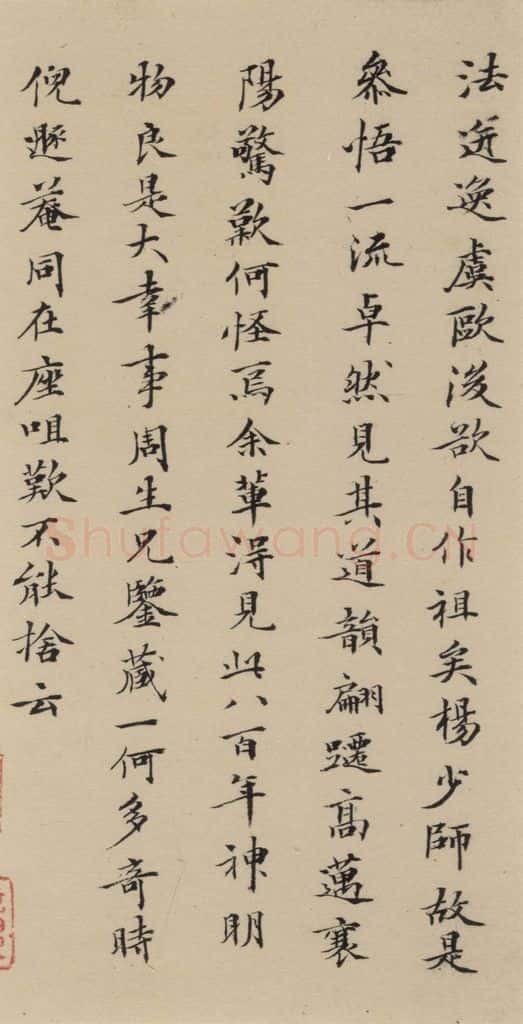 法迸逸虞歐後欲自作祖矣楊少師故是
叅悟一流卓然見其道韻翩躚高邁襄
陽驚歎何怪焉余輩得見此八百年神明
物良是大幸事周生兄鑒藏一何多奇時
倪遯菴同在座咀歎不能捨云
Shufawang.CN